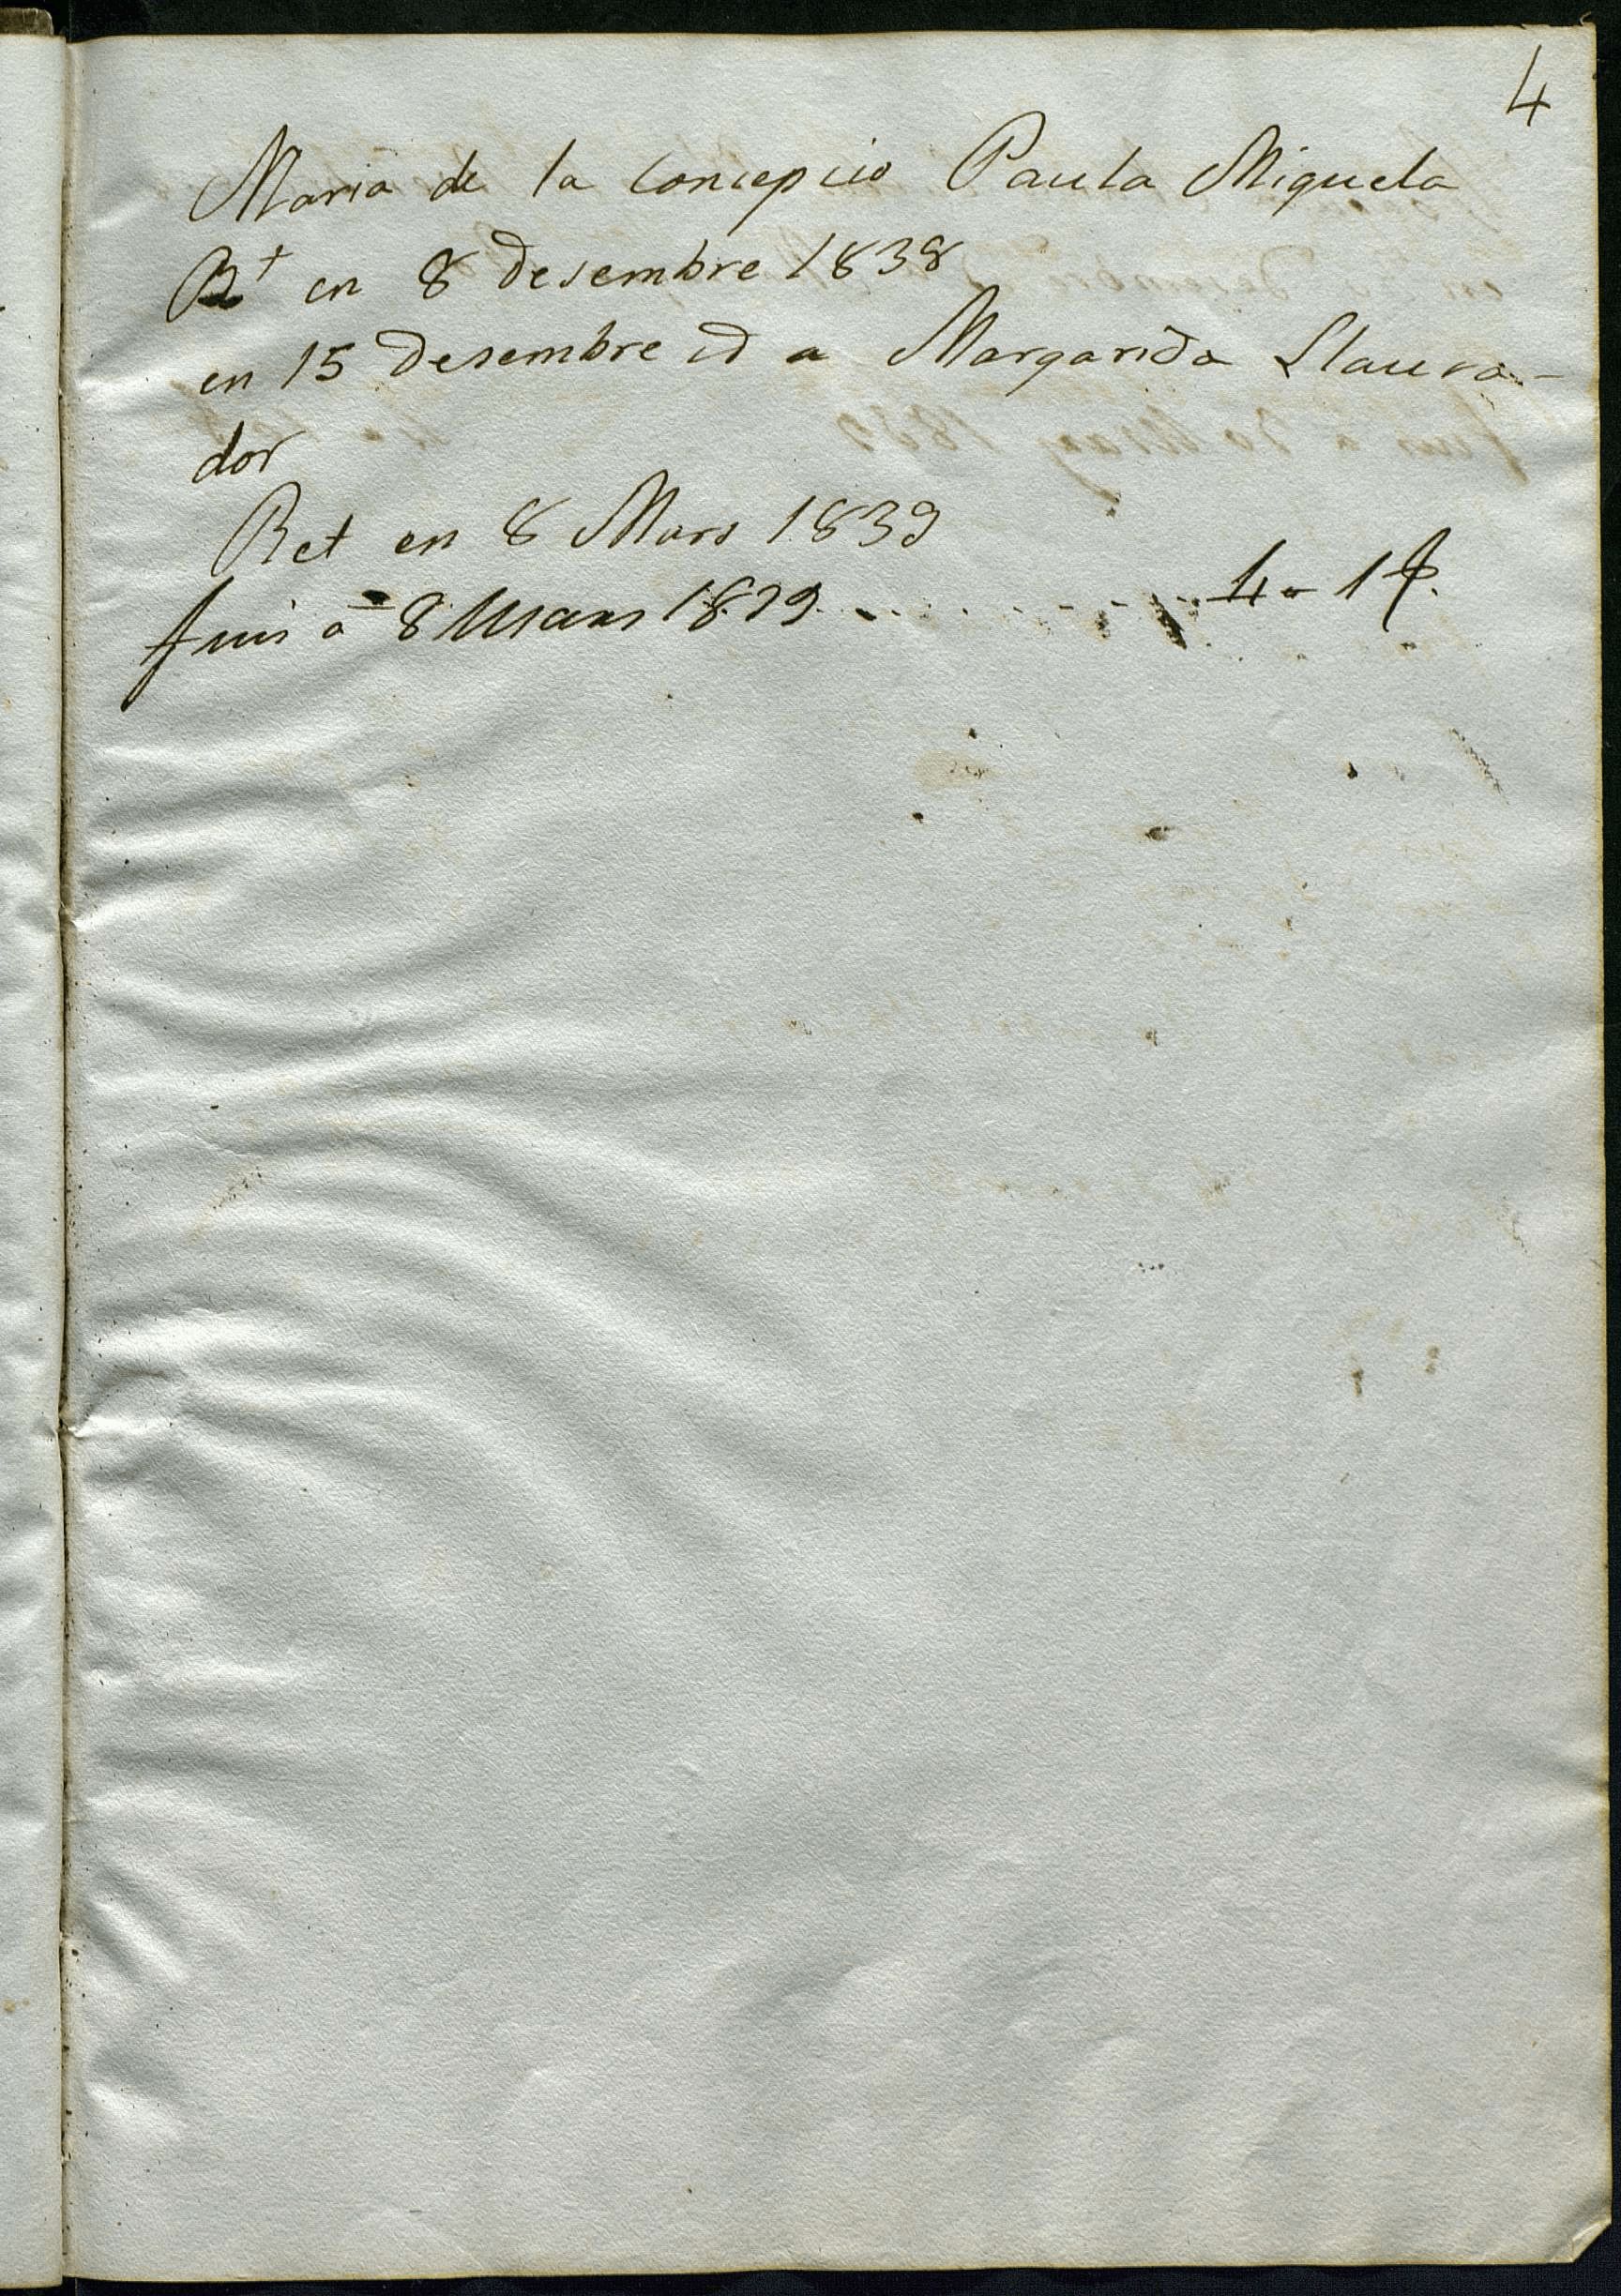 4
Maria de la Concepcio Paula Miquela
Bt en 8 Desembre 1838
en 15 Desembre id a Margarida Llaura-
dor
Ret en 8 Mars 1839
fins a 8 Mars 1839 . . . . . . . . 4 - 1